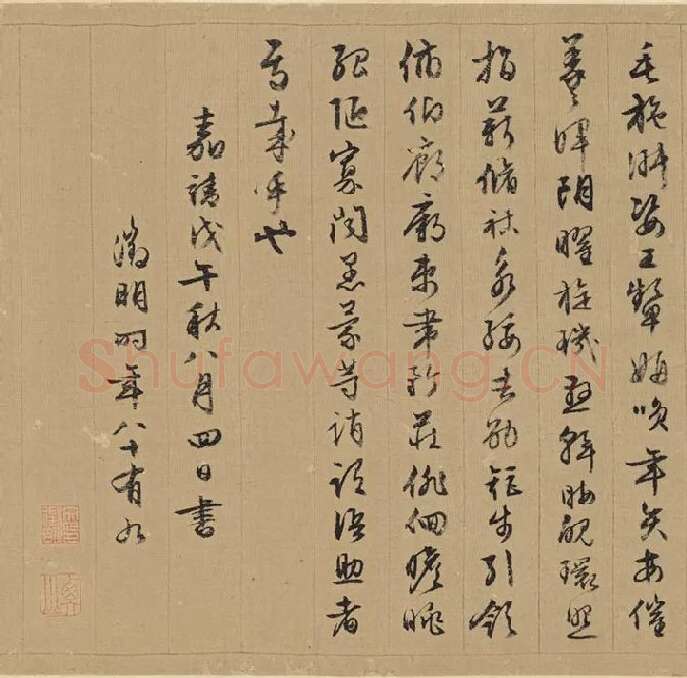 毛施淑姿工顰妍笑年矢每催
羲暉朗曜旋璣懸斡晦魄環照
指薪脩祜永綏吉劭矩步引領
俯仰廊廟束帶矜莊徘徊瞻眺
孤陋寡聞愚蒙等誚謂語助者
焉哉乎也
嘉靖戊午秋八月四日書
徵明時年八十有九
Shufawang.CN